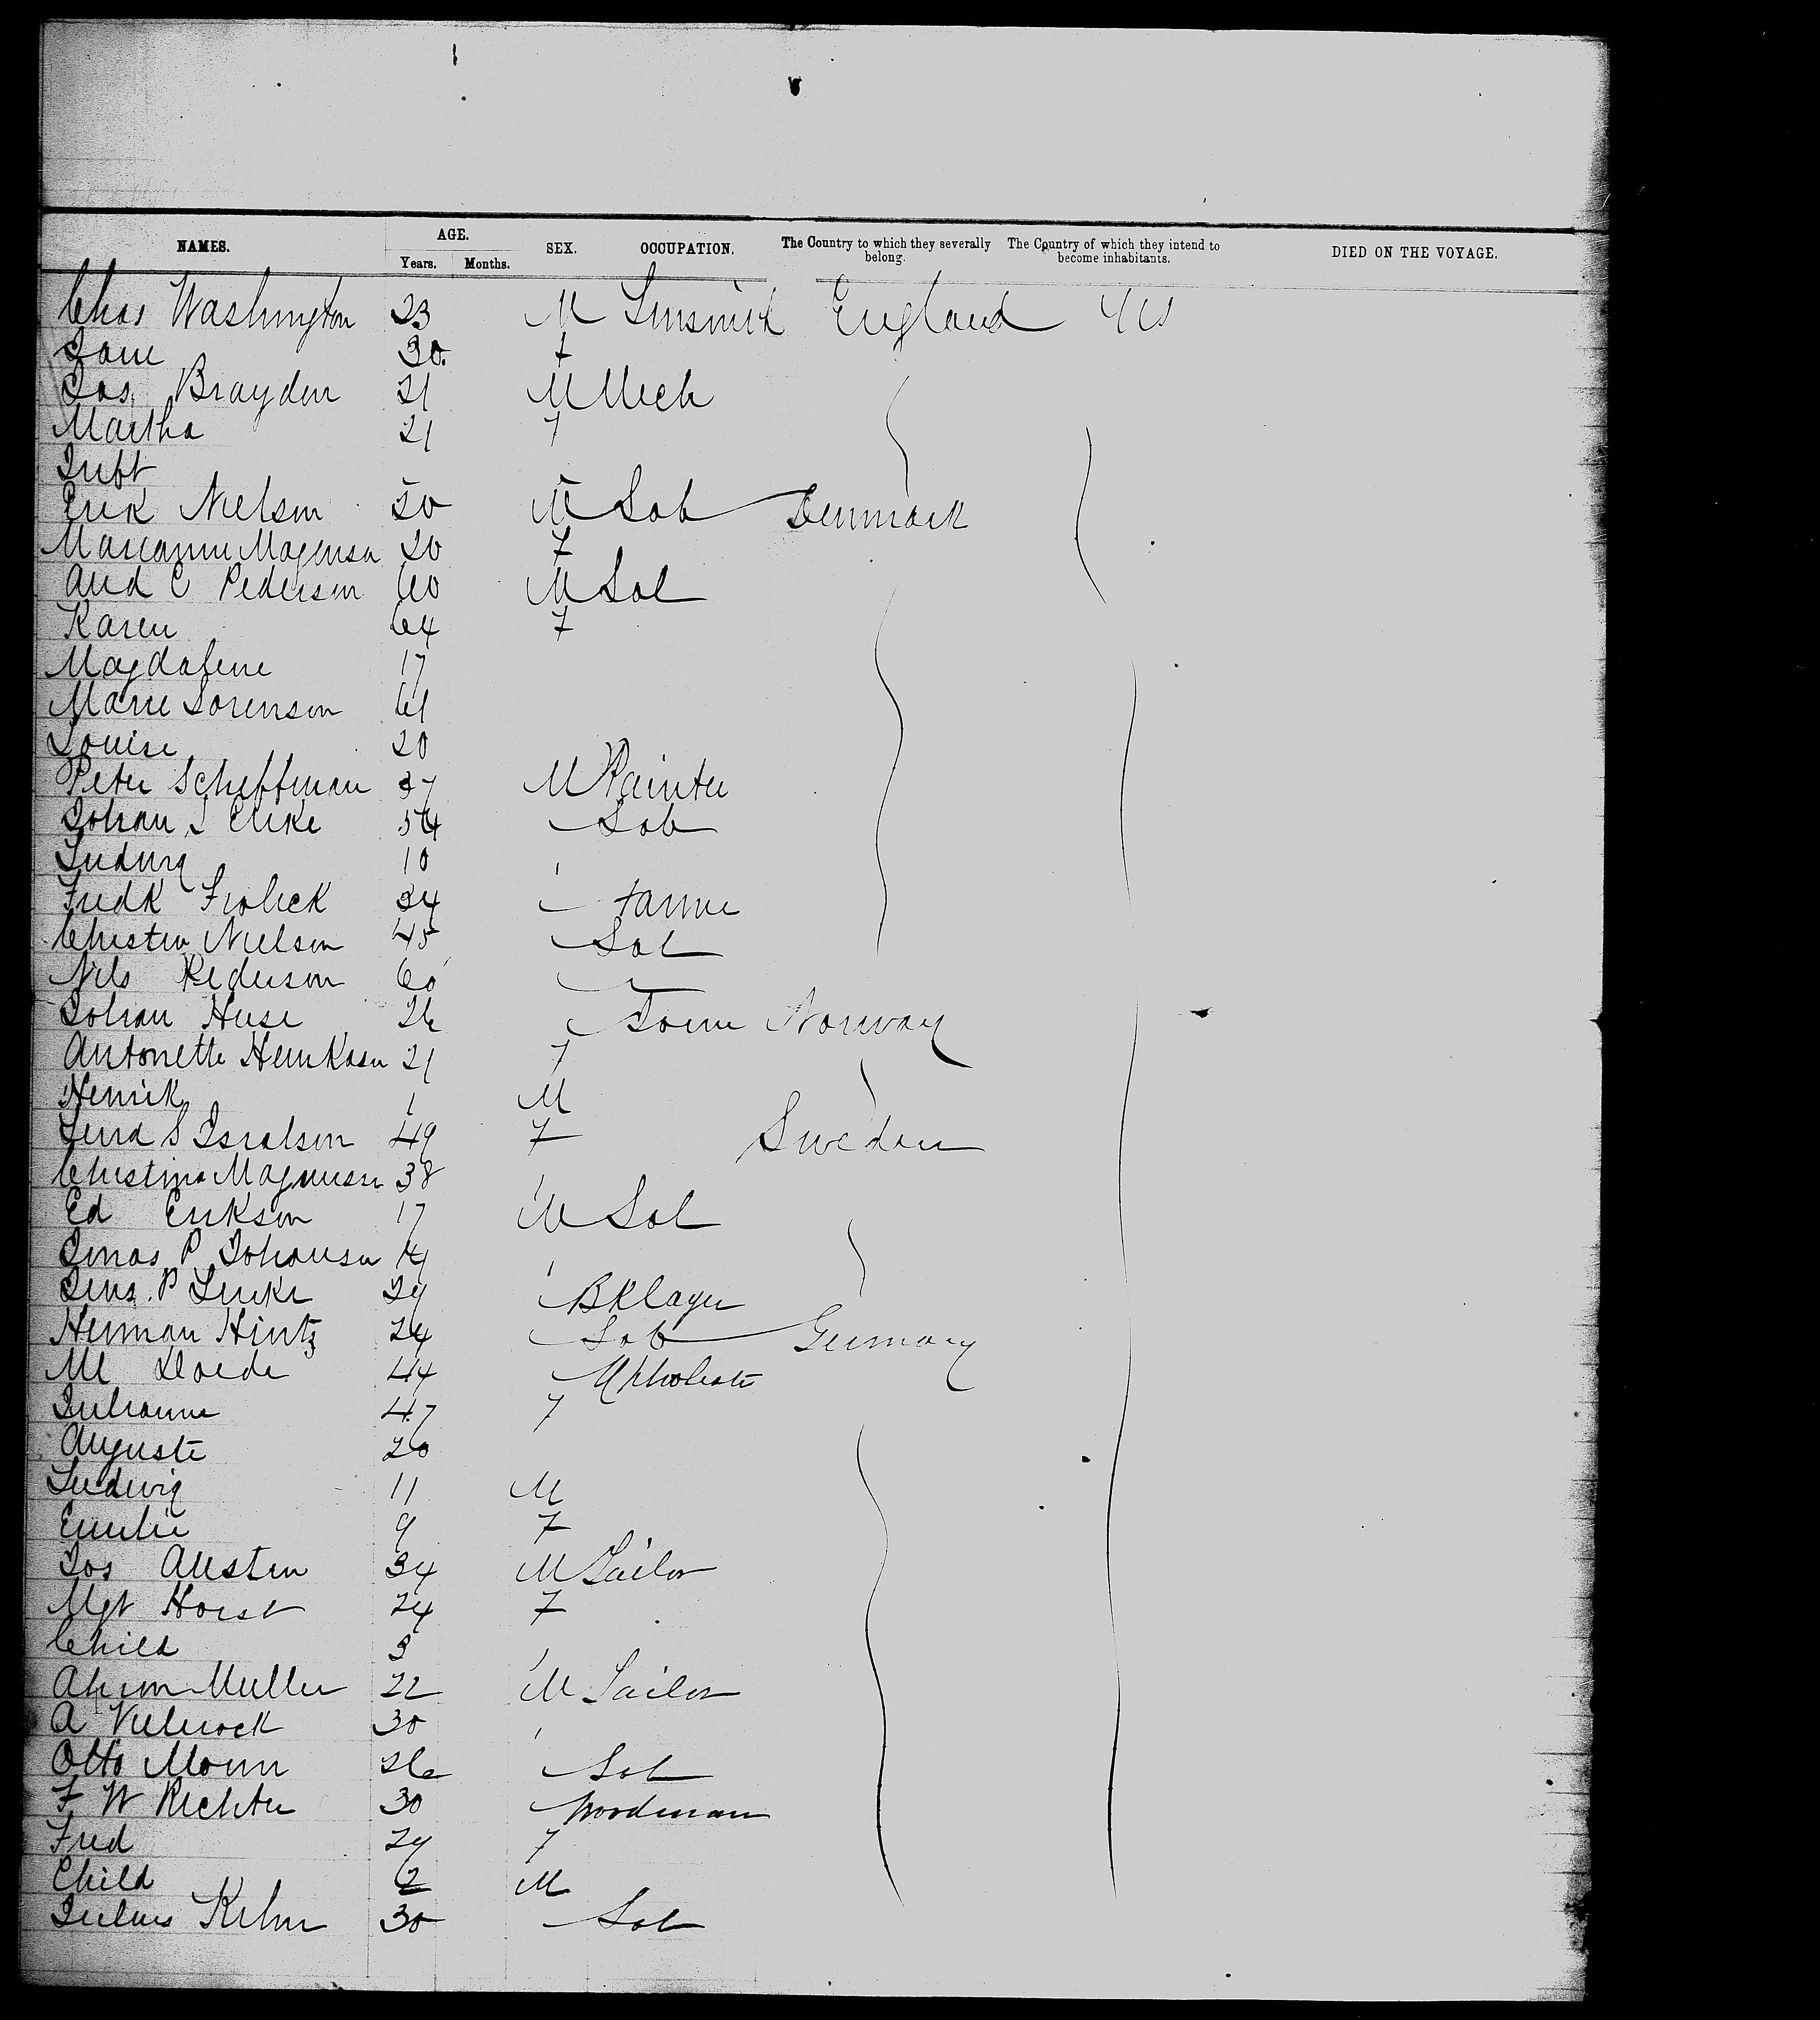 NAMES. AGE. SEX. OCCUPATION. The Country to which they severally belong. The Country of which they intend to become inhabitants. DIED ON THE VOYAGE.
Years. Months.
Chas Washington 23 M England US
Jane 30 F
Jas. Brayden 21 M Mech
Martha 21 F
Inft
Erik Nielson 20 M Lab Denmark
Marianne Magensen 20 F
And C Pederson 60 M Lab
Karen 64 F
Magdalene 17
Marie Sorenson 61
Louise 20
Peter Scheffman 37 M Painter
Johan 54 Lab
Ludwig 10
Fredk Frolick 24
Christen Nielson 45 Lab
Nils Pederson 60
Johan Huse 26 Norway
Antonette Henriksen 21 F
Henrik 1 M
Lena S Israelson 49 F Sweden
Christina Magnussen 38
Ed Erikson 17 M Lab
Jonas P Johansen 19
Jens. P 29 BKlayer
Herman Hintz 24 Lab Germany
M 44 Upholsts
Julianne 47 F
Auguste 20
Ludwig 11 M
Emilie 9 F
Jos Austen 34 M Tailor
Mgt Horst 24 F
Child 3
Muller 22 M Tailor
A 30
Otto Monn 26 Lab
F W Richter 30 Woodman
Fred 29 F
Child 2 M
Julius Kuhn 30 Lab